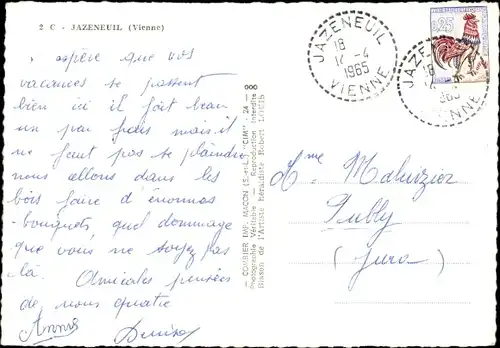 2 C - JAZENEUIL (Vienne)
espère que vos
vacances se passent
bien ici il fait beau
un peu frais mais il
ne faut pas se plaindre
nous allons dans les
bois faire d'énormes
bouquets, quel dommage
que vous ne soyez pas
là. Amicales pensées
de nous quatre
Annie
Denise
COMBIER IMP. MACON (S.-et-L.) "CIM" - 24 -
Photographie Véritable - Reproduction Interdite
Blason de l'Artiste héraldiste Robert LOUIS
JAZENEUIL
18
14 - 4
1965
VIENNE
0,25
JAZE
18
14
965
VIENNE
Mme Maluzier
Publy
(Jura)